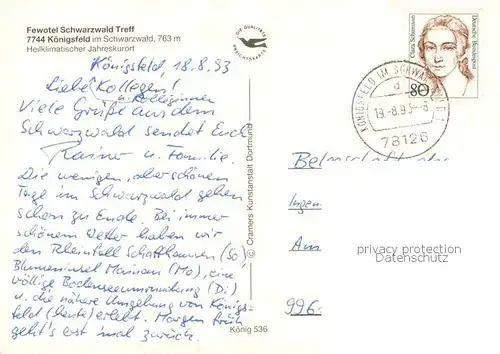 Fewotel Schwarzwald Treff
7744 Königsfeld im Schwarzwald, 763 m
Heilklimatischer Jahreskurort
Königsfeld, 18.8.93
Liebe Kollegen!
u. Kolleginnen
Viele Grüße aus dem
Schwarzwald sendet Euch
Rainer u. Familie.
Die wenigen, aber schönen
Tage im Schwarzwald gehen
schon zu Ende. Bei immer
schönem Wetter haben wir
den Rheinfall Schaffhausen (So)
Blumeninsel Mainau (Mo), eine
völlige Bodenseeumrundung (Di)
u. die nähere Umgebung von Königs-
feld (heute) erlebt. Morgen früh
geht's erst mal zurück.
© Cramers Kunstanstalt Dortmund
König 536
Clara Schumann
Deutsche Bundespost
80
KÖNIGSFELD IM SCHWARZWALD
d
19.-8.93-8
78126
Ingen
Am
996
privacy protection
Datenschutz